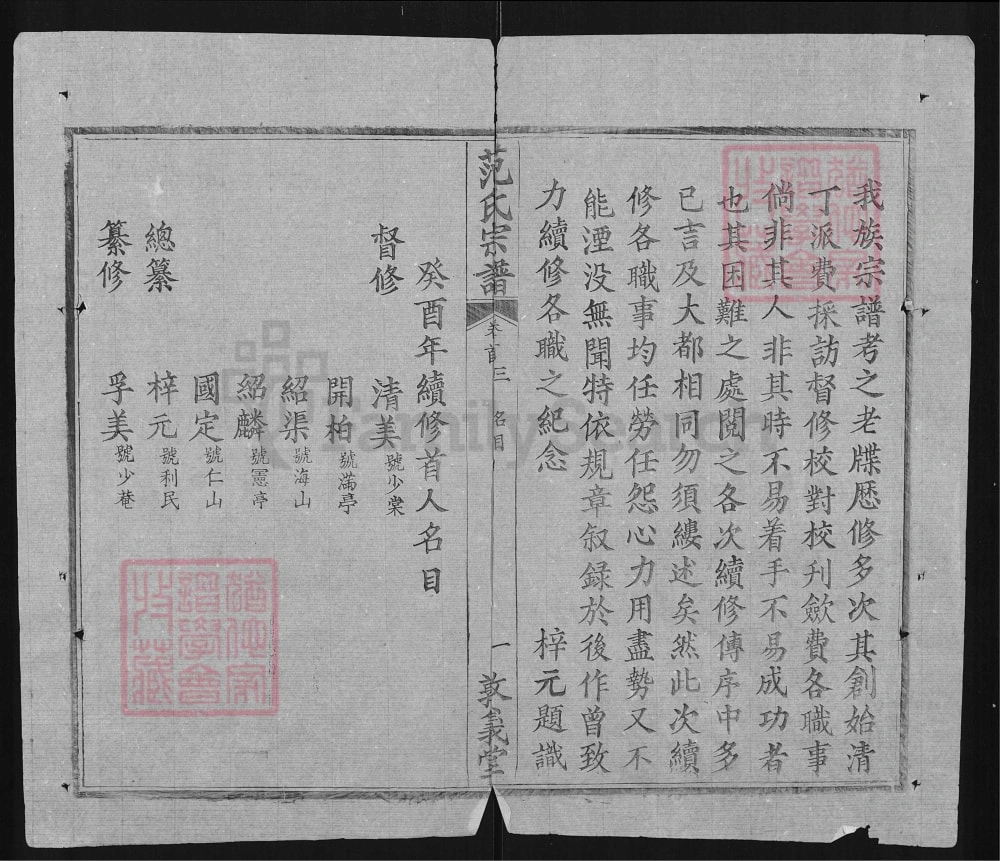 我族宗譜考之老牒歷修多次其創始清
丁派費採訪督修校對校刋斂費各職事
倘非其人非其時不易着手不易成功者
也其困難之處閱之各次續修傳序中多
已言及大都相同勿須縷述矣然此次續
修各職事均任勞任怨心力用盡勢又不
能湮没無聞特依規章叙録於後作曾致
力續修各職之紀念
梓元題識
范氏宗譜
卷首三
名目
一
敦義堂
癸酉年續修首人名目
督修
清美號少棠
開柏號滿亭
紹渠號海山
紹麟號憲亭
國定號仁山
總纂
梓元號利民
纂修
孚美號少菴
FamilySearch